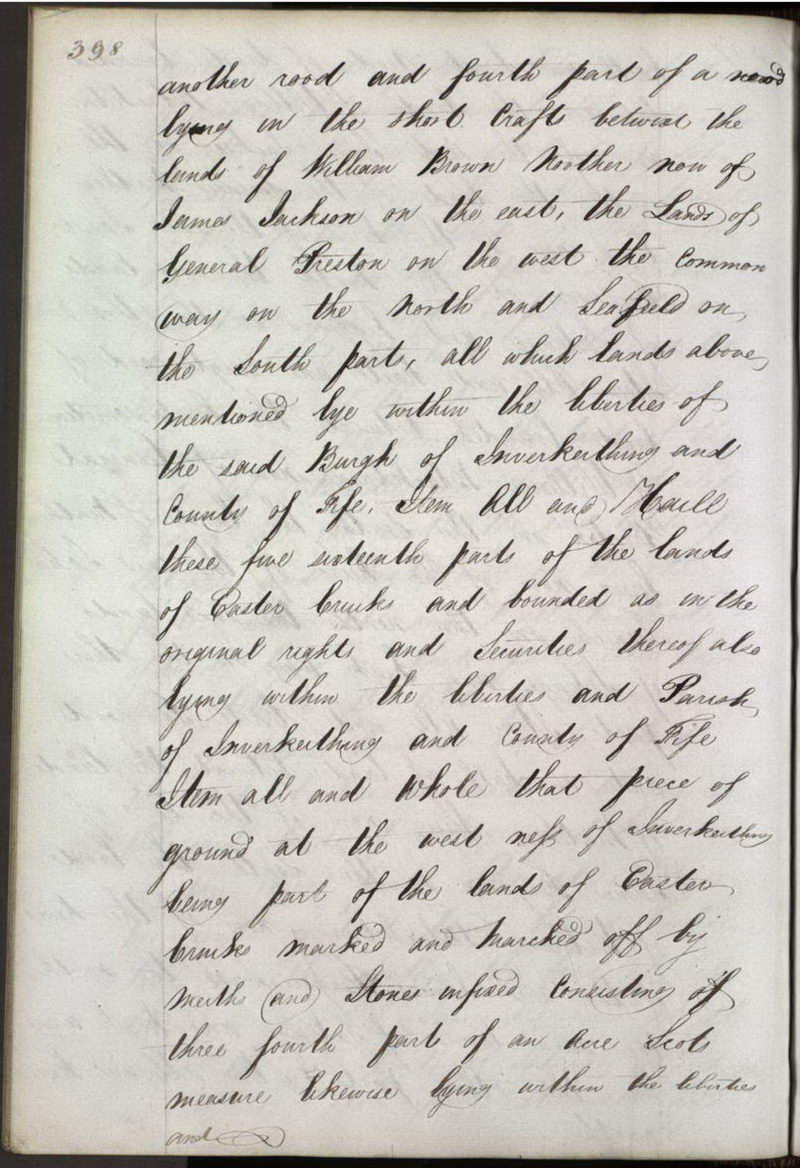 398
another rood and fourth part of a rood
lying in the short Craft betwixt the
lands of William Brown Norther now of
James Jackson on the east, the Lands of
General Preston on the west the Common
way on the North and Seafield on
the South parts, all which lands above
mentioned lye within the liberties of
the said Burgh of Inverkeithing and
County of Fife, Item All and Haill
these five sixteenth parts of the lands
of Easter Cruiks and bounded as in the
original rights and Securities thereof also
lying within the liberties and Parish
of Inverkeithing and County of Fife
Item all and Whole that piece of
ground at the west ness of Inverkeithing
being part of the lands of Easter
Cruiks marked and Marched off by
Meiths and Stones infixed Consisting of
three fourth part of an Acre Scots
measure likewise lying within the liberties
and